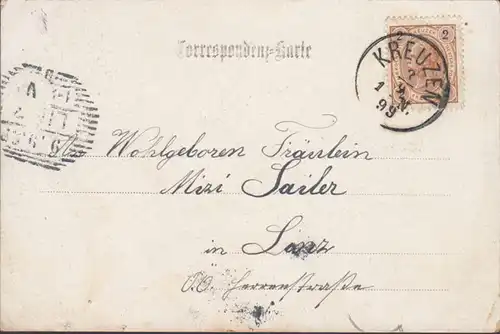 Correspondenz-Karte
2
KREUZEN
99
Wohlgeboren Fräulein
Mizi Sailer
in Linz
O.Ö. Herrenstraße